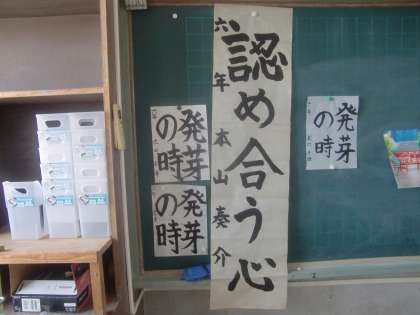 認め合う心
六年 本山奏介
発芽
の時
発芽
の時
発芽
の時